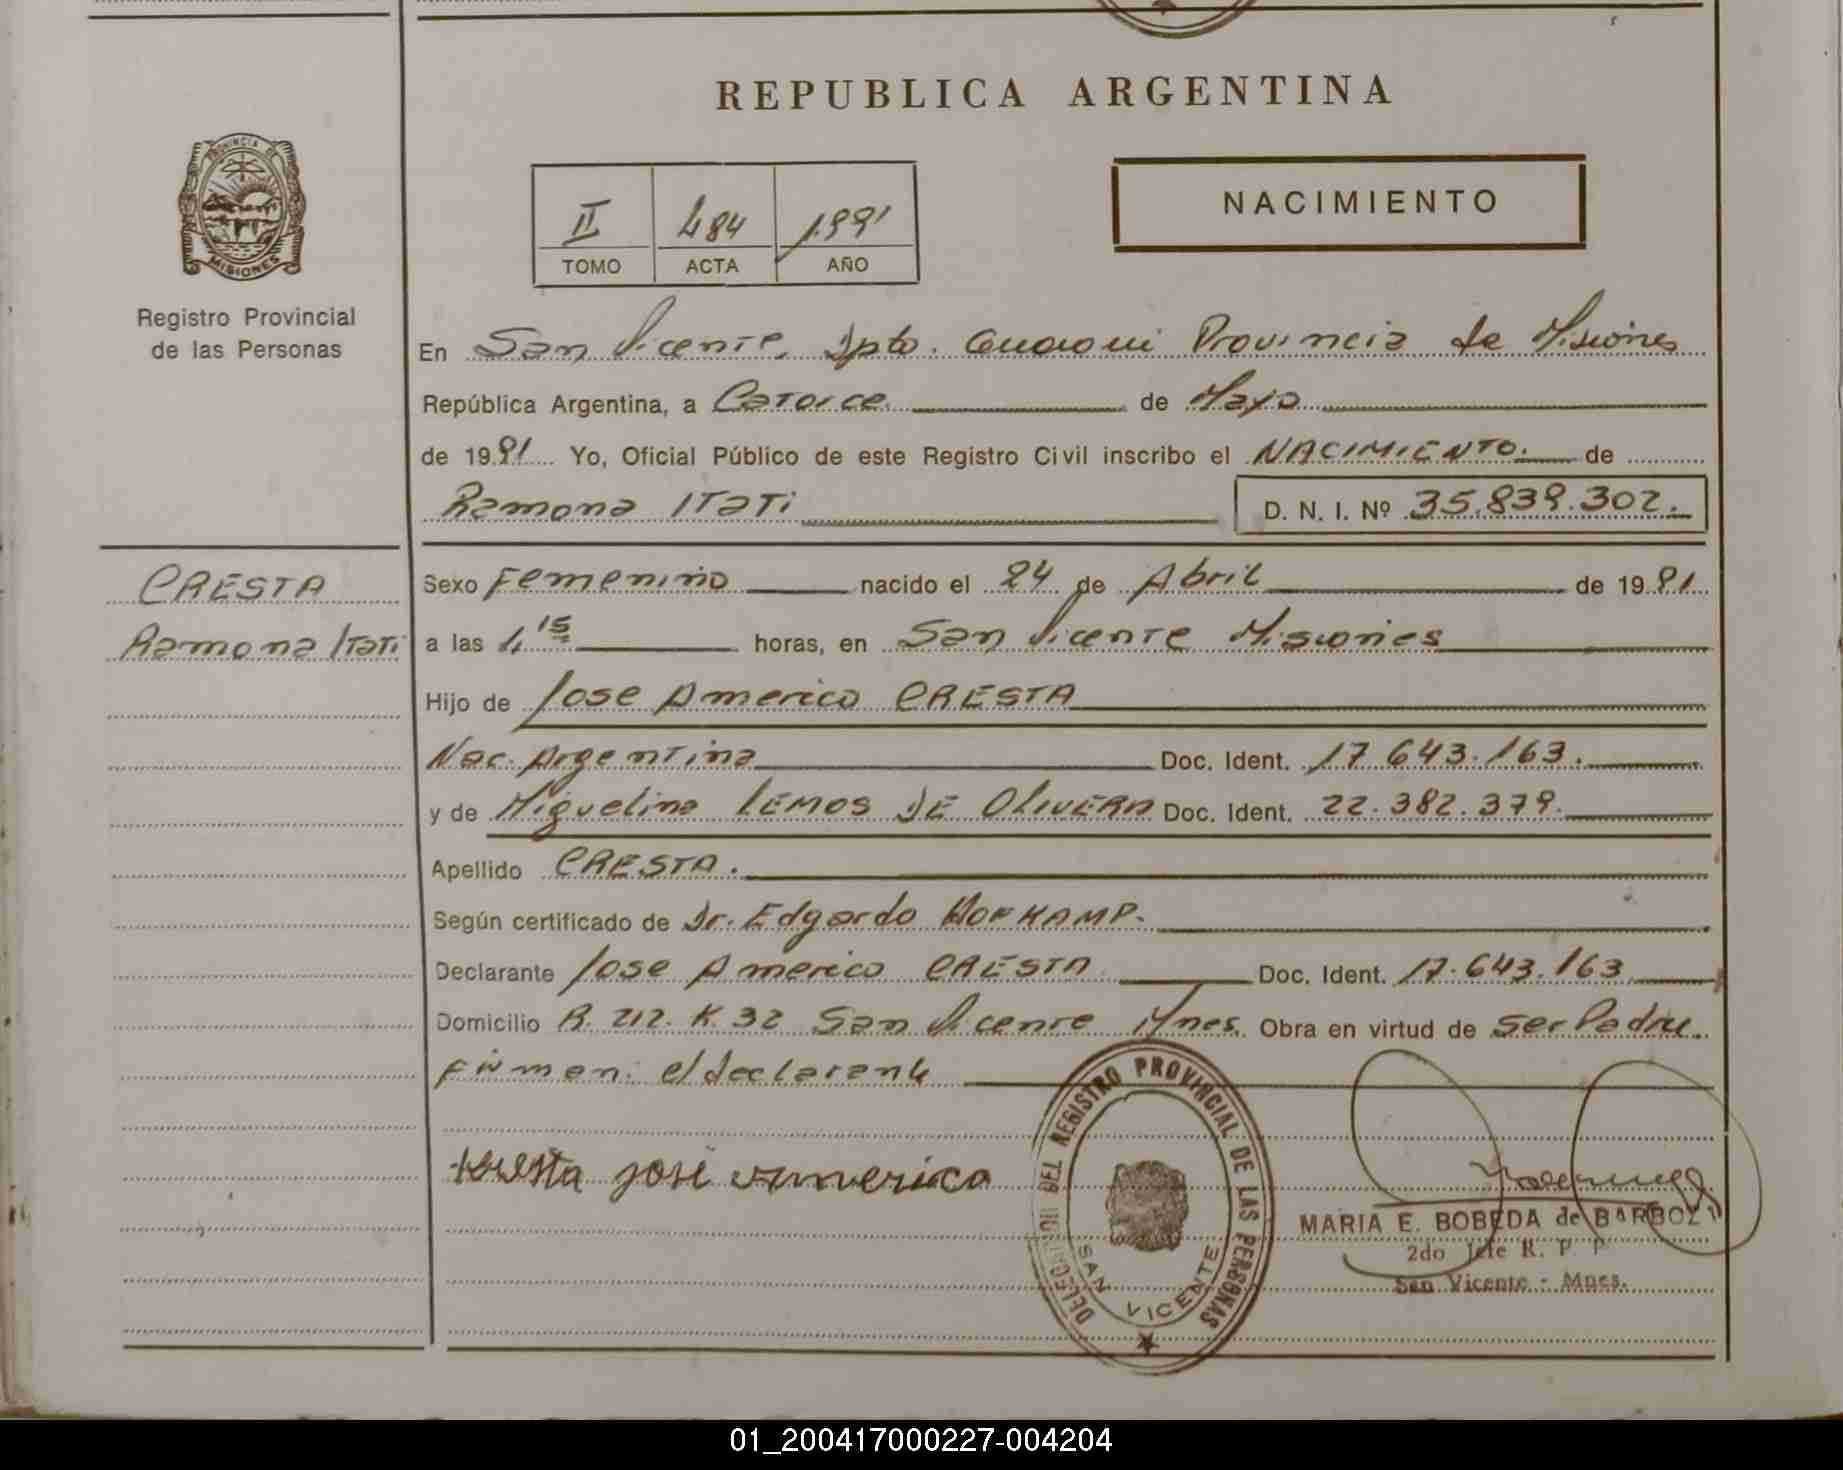 REPUBLICA ARGENTINA
PROVINCIA DE MISIONES
Registro Provincial
de las Personas
II 484 1991
TOMO ACTA AÑO
NACIMIENTO
En San Vicente, Dpto. Guaraní Provincia de Misiones
República Argentina, a Catorce de Mayo
de 1991 Yo, Oficial Público de este Registro Civil inscribo el NACIMIENTO. de
Ramona ITATI D. N. I. Nº 35.839.302.
CRESTA
Ramona Itati
Sexo Femenino nacido el 24 de Abril de 1991
a las 4,15 horas, en San Vicente Misiones
Hijo de Jose Americo CRESTA
Nac. Argentina Doc. Ident. 17 643.163.
y de Miguelina LEMOS DE OLIVERA Doc. Ident. 22.382.379.
Apellido CRESTA.
Según certificado de Dr. Edgardo HOFKAMP.
Declarante Jose Americo CRESTA Doc. Ident. 17.643.163
Domicilio R. 212. K. 32 San Vicente Mnes. Obra en virtud de ser Padre
firman: el declarante
José Americo
REGISTRO PROVINCIAL DE LAS PERSONAS
SAN VICENTE
MARIA E. BOBEDA de BARBOZA
2do Jefe R. P. P
San Vicente - Mnes.
01_200417000227-004204